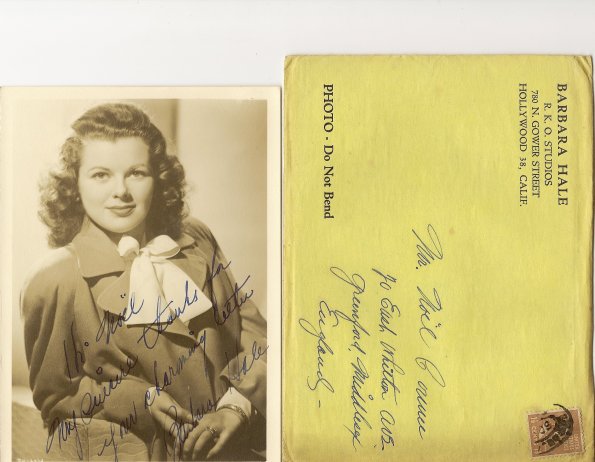 Hi Nöel
My Sincere thanks for
your charming letter
Barbara Hale
BARBARA HALE
R. K. O. STUDIOS
780 N. GOWER STREET
HOLLYWOOD 38, CALIF.
PHOTO - Do Not Bend
Mr. Nöel
70 East Whitton Ave.
Greenford, Middlesex
England -